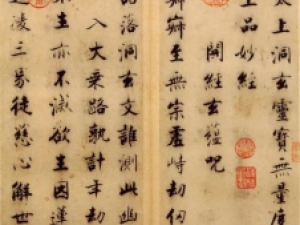 太上洞玄靈寶無量度
上品妙經
開經玄蘊呪
寂寂至無宗虛峙劫仞
豁落洞玄文誰測此幽
入大乘路孰計年劫
生亦不滅欲生因蓮
凌三界徒慈心解世